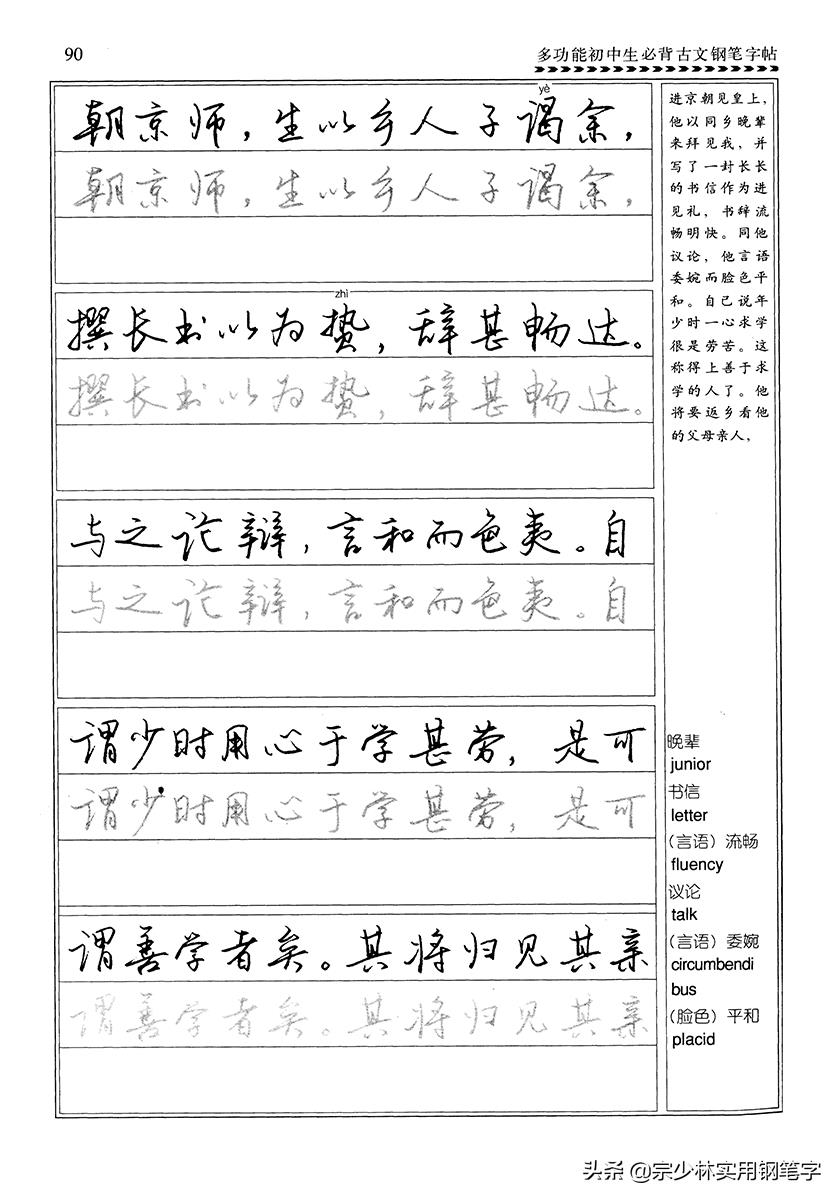 90
多功能初中生必背古文钢笔字帖
yè
朝京师，生以乡人子谒余，
朝京师，生以乡人子谒余，
zhì
撰长书以为贽，辞甚畅达。
撰长书以为贽，辞甚畅达。
与之论辩，言和而色夷。自
与之论辩，言和而色夷。自
谓少时用心于学甚劳，是可
谓少时用心于学甚劳，是可
谓善学者矣。其将归见其亲
谓善学者矣。其将归见其亲
进京朝见皇上，
他以同乡晚辈
来拜见我，并
写了一封长长
的书信作为进
见礼，书辞流
畅明快。同他
议论，他言语
委婉而脸色平
和。自己说年
少时一心求学
很是劳苦。这
称得上善于求
学的人了。他
将要返乡看他
的父母亲人，
晚辈
junior
书信
letter
（言语）流畅
fluency
议论
talk
（言语）委婉
circumbendi
bus
（脸色）平和
placid
头条 @宗少林实用钢笔字